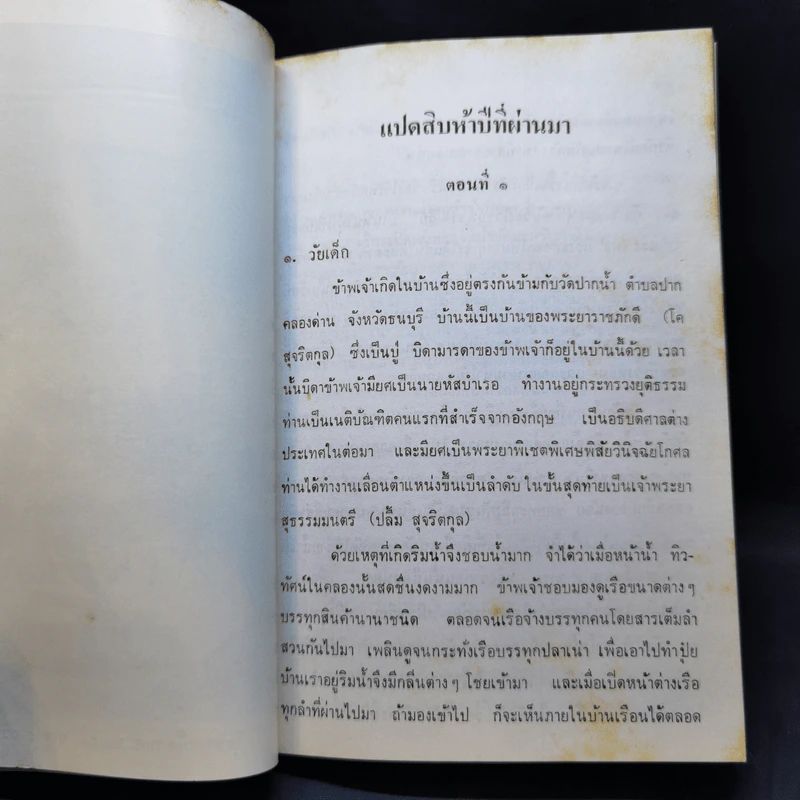 แปดสิบห้าปีที่ผ่านมา
ตอนที่ ๑
๑. วัยเด็ก
ข้าพเจ้าเกิดในบ้านซึ่งอยู่ตรงกันข้ามกับวัดปากน้ำ ตำบลปาก
คลองด่าน จังหวัดธนบุรี บ้านนี้เป็นบ้านของพระยาราชภักดี (โค
สุจริตกุล) ซึ่งเป็นปู่ บิดามารดาของข้าพเจ้าก็อยู่ในบ้านนี้ด้วย เวลา
นั้นบิดาข้าพเจ้ามียศเป็นนายหัสบำเรอ ทำงานอยู่กระทรวงยุติธรรม
ท่านเป็นเนติบัณฑิตคนแรกที่สำเร็จจากอังกฤษ เป็นอธิบดีศาลต่าง
ประเทศในต่อมา และมียศเป็นพระยาพิเชตพิเศษพิสัยวินิจฉัยโกศล
ท่านได้ทำงานเลื่อนตำแหน่งขึ้นเป็นลำดับ ในขั้นสุดท้ายเป็นเจ้าพระยา
สุธรรมมนตรี (ปลื้ม สุจริตกุล)
ด้วยเหตุที่เกิดริมน้ำจึงชอบน้ำมาก จำได้ว่าเมื่อหน้าน้ำ ทิว-
ทัศน์ในคลองนั้นสดชื่นงดงามมาก ข้าพเจ้าชอบมองดูเรือขนาดต่างๆ
บรรทุกสินค้านานาชนิด ตลอดจนเรือจ้างบรรทุกคนโดยสารเต็มลำ
สวนกันไปมา เพลินดูจนกระทั่งเรือบรรทุกปลาเน่า เพื่อเอาไปทำปุ๋ย
บ้านเราอยู่ริมน้ำจึงมีกลิ่นต่างๆ โชยเข้ามา และเมื่อเปิดหน้าต่างเรือ
ทุกลำที่ผ่านไปมา ถ้ามองเข้าไป ก็จะเห็นภายในบ้านเรือนได้ตลอด